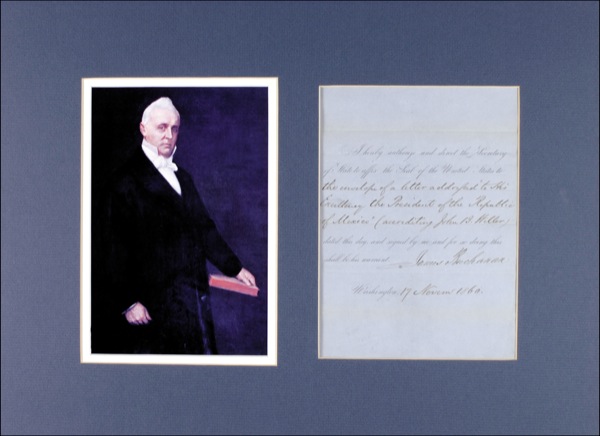 I hereby authorize and direct the Secretary
of State to affix the Seal of the United States to
the envelope of a letter addressed to His
Excellency the President of the Republic
of Mexico (accrediting John B. Weller)
dated this day, and signed by me and for so doing this
shall be his warrant. James Buchanan
Washington, 17 Novem 1860.